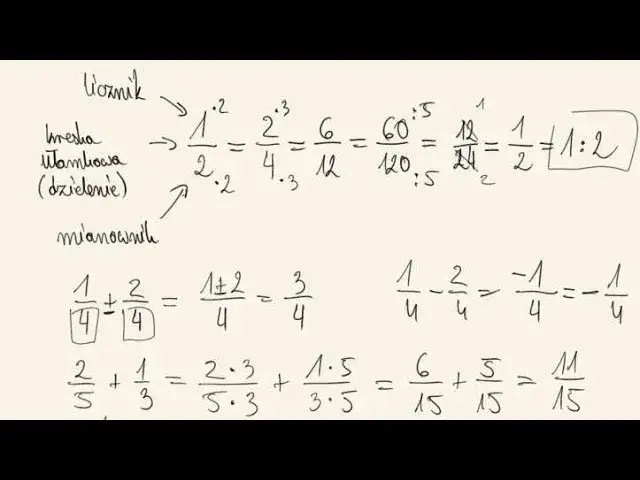 licznik
kreska
ułamkowa
(dzielenie)
mianownik
1/2 ·2 ·2 = 2/4 ·3 ·3 = 6/12 = 60/120 :5 :5 = 12/24 1 2 = 1/2 = 1:2
1/4 ± 2/4 = 1±2/4 = 3/4
1/4 - 2/4 = -1/4 = -1/4
2/5 + 1/3 = 2·3/5·3 + 1·5/3·5 = 6/15 + 5/15 = 11/15